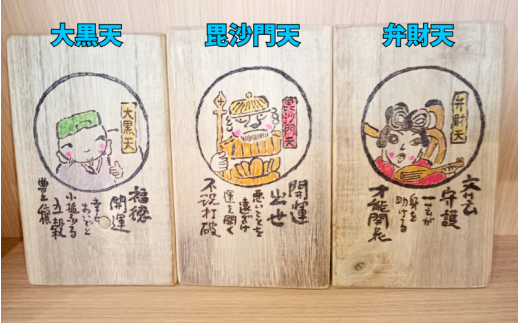 大黒天
毘沙門天
弁財天
大黒天
福徳
開運
幸を
小槌ふる
五穀
豊穣
毘沙門天
開運
出世
悪いことを
遠ざけ
運を開く
不況打破
弁財天
交芸
守護
一芸が
身を
助ける
才能開花